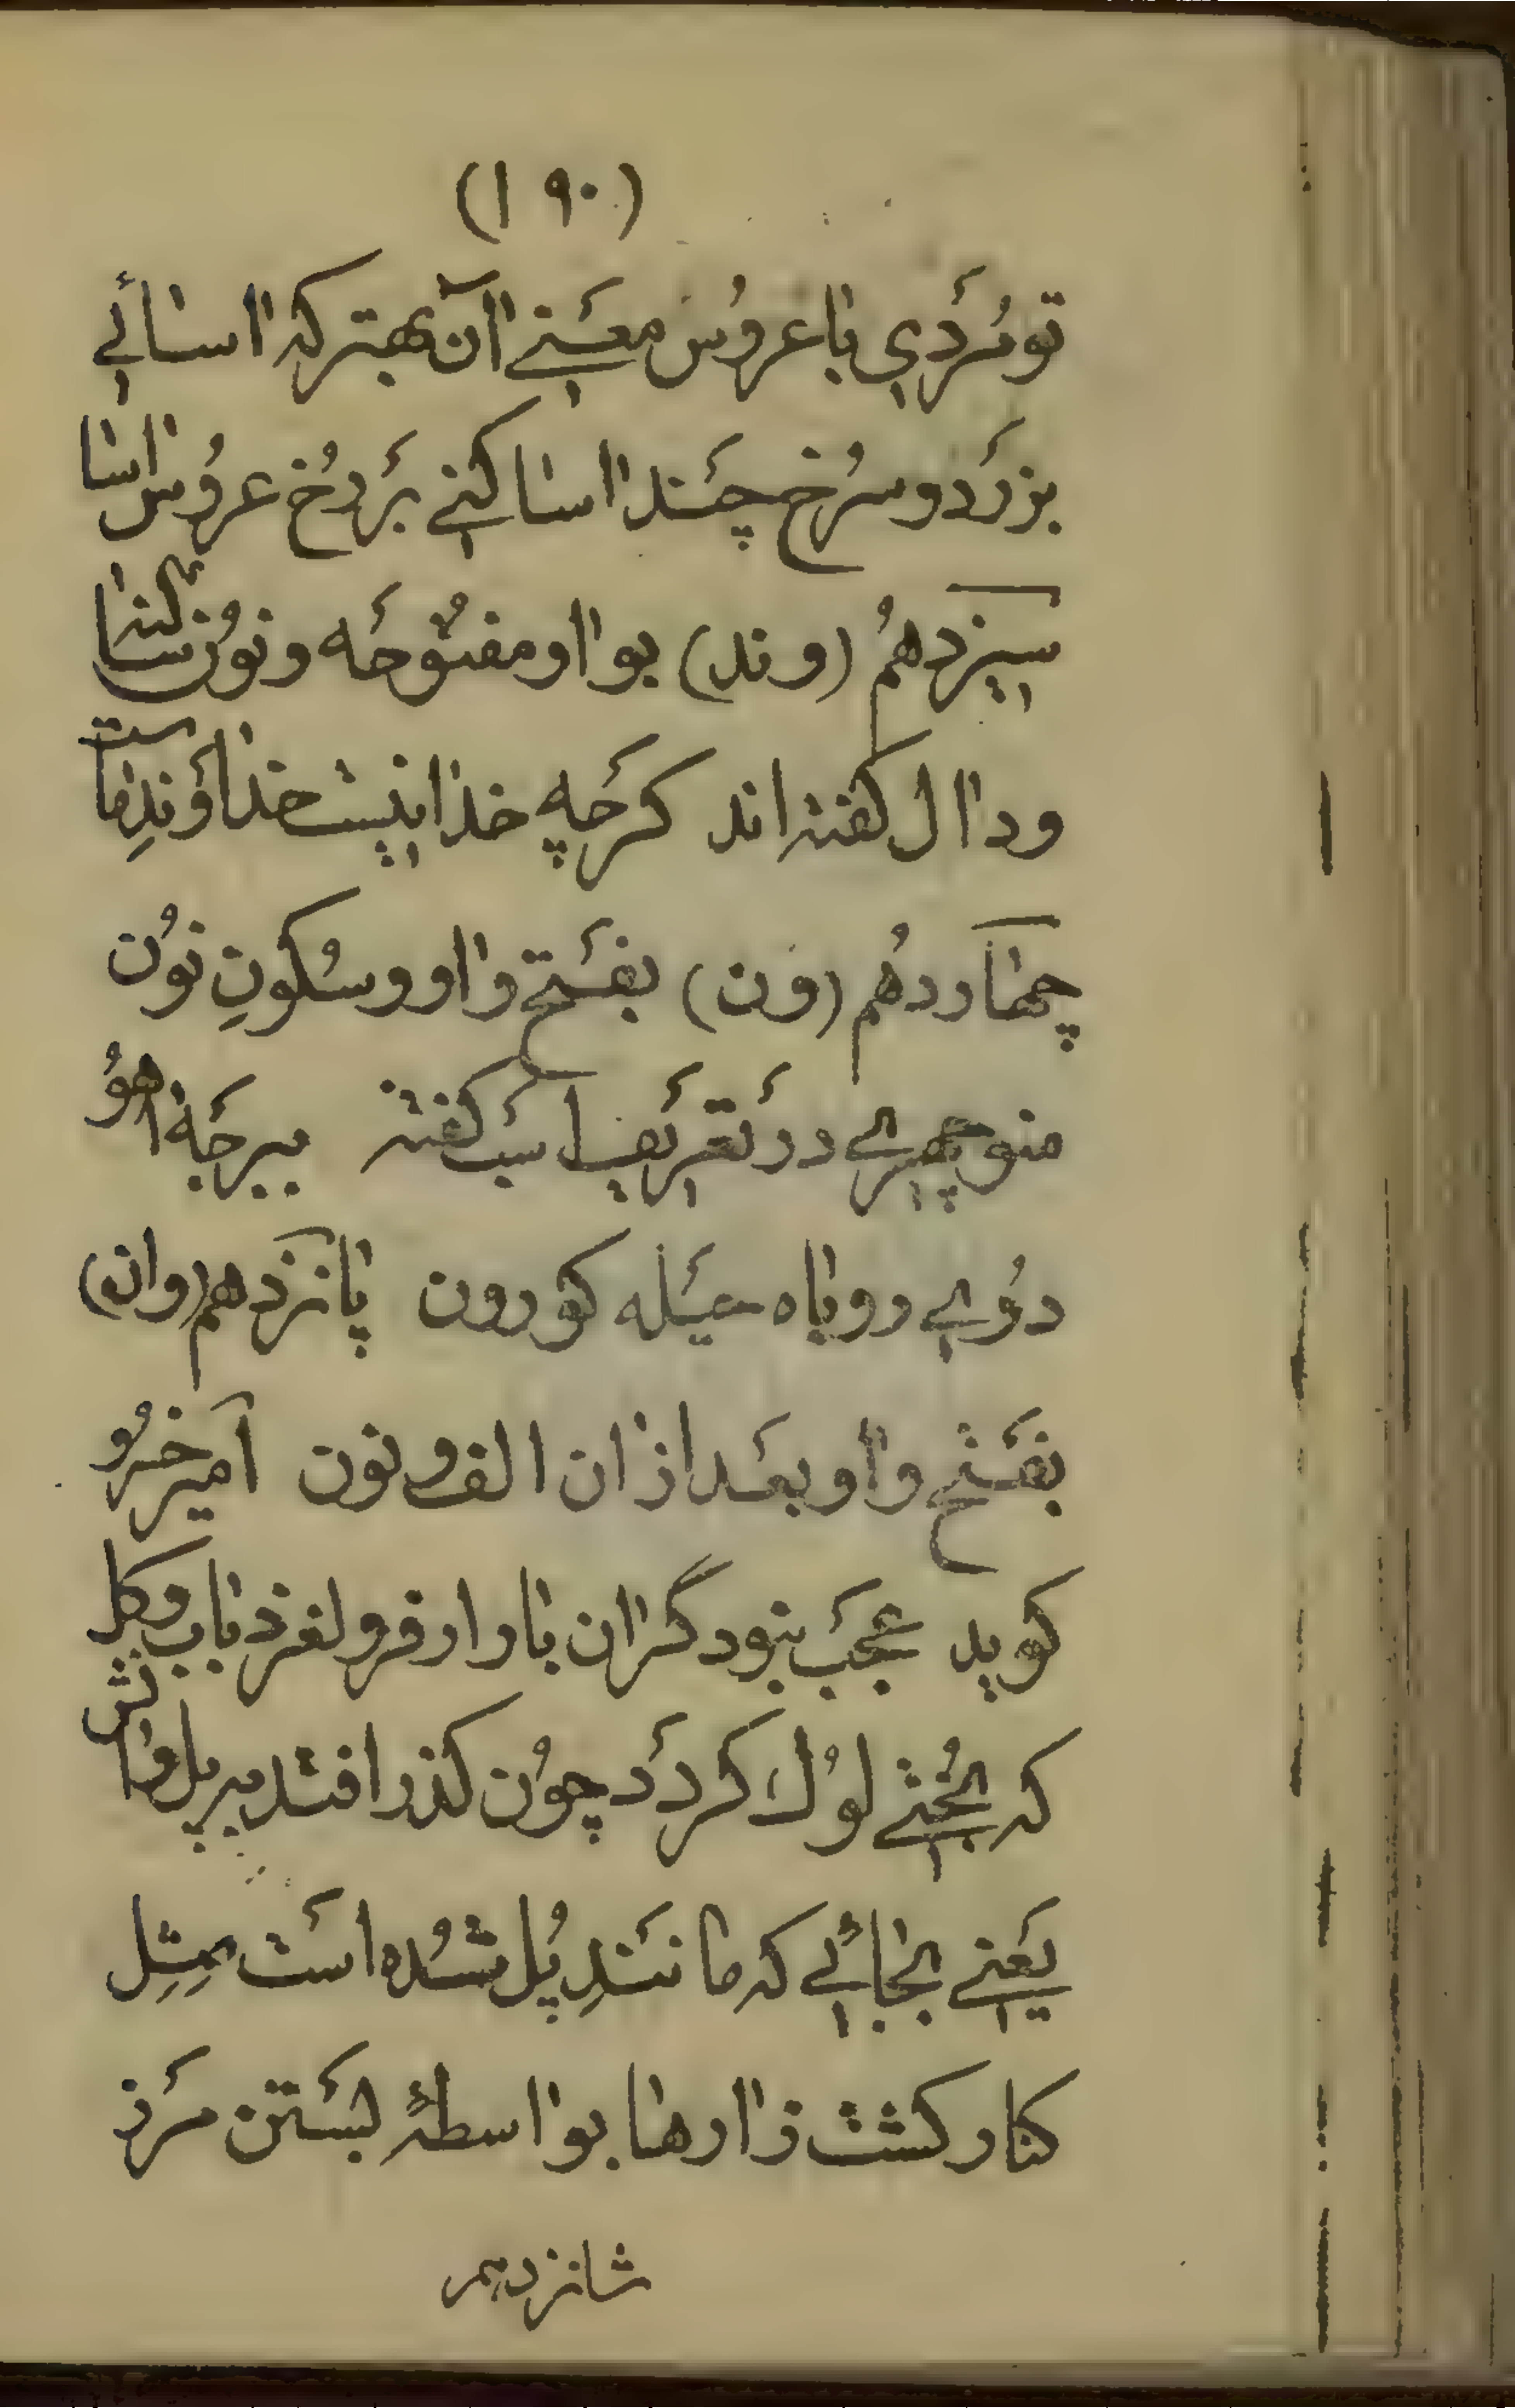 (۱۹۰)
تو مُرَدي با عروُس معَنے اان بهتر که ااسائے
بزرَد و سُرخ چَند ااسا کنے بَر رُخ عروُس ااسا
سیزدهُم (وند) بواو مفتوُحَه و نوُن ساکنه
و داال کفته اند کرَچه خداانیست خدااوَندِ ما ست
چهاردهُم (وَن) بفَتح وااو و سُکونِ نوُن
منوچهرے درَ تعَریَف اسَپ کفته ببر جَه اهوُ
دوُے روباه حیَله کور ون پانزدهم (وان)
بفَتح وااو بعَد ازان الف و نون امیر خسرُو
کوید عجَب نبود گراان بار ار فرو لغزد باب و کل
که بُختے لوُک کردَد چوُن کذر افتد بر پل وانش
یَعنے بجاائے که ماانَندِ پُل شُده استَ بمِثلِ
کنار کشت زاارها بوااسطهٔ بسَتن مَرز
شانزدهم